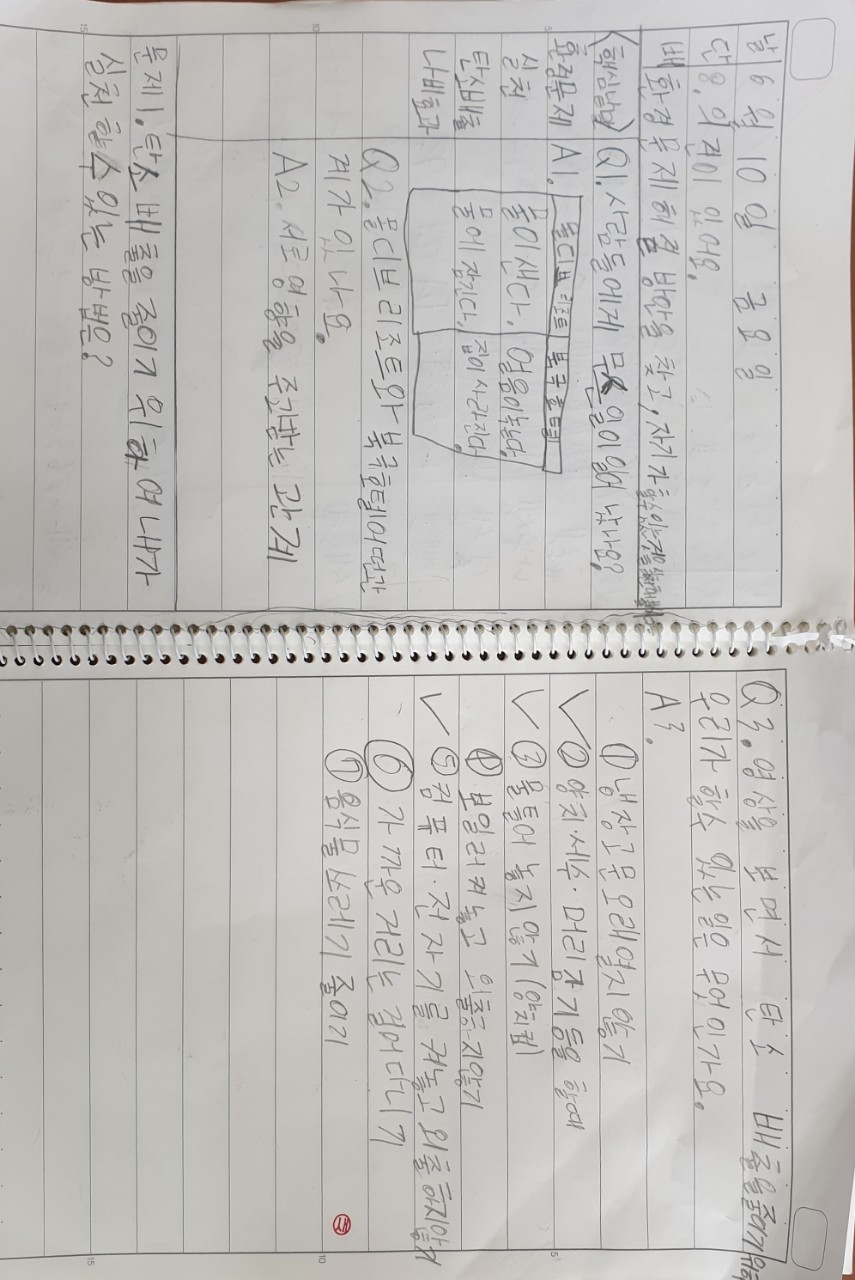 날 6월 10일 금요일
단 8. 의견이 있어요.
배 환경문제 해결 방안을 찾고, 자기가 할수있는것을
<핵심낱말> Q1. 사람들에게 무슨 일이 일어 났나요?
환경문제 A1. 몰디브 리조트 북극 호텔
실천 물이샌다. 얼음이녹는다.
탄소배출 물에 잠긴다. 집이 사라진다.
나비효과
Q2. 몰디브 리조트와 북극호텔어떤관
계가 있나요.
A2. 서로 영향을 주고받는 관계
문제1. 탄소 배출을 줄이기 위하여 내가
실천 할수 있는 방법은?
Q3. 영상을 보면서 탄소 배출을줄이기위해
우리가 할수 있는 일은 무엇인가요.
A3.
① 냉장고문 오래열지 않기
✓② 양치·세수·머리감기등을 할때
✓③ 물틀어 놓지 않기 (양치컵)
④ 보일러켜놓고 외출하지않기
✓⑤ 컴퓨터·전자기를 켜놓고 외출하지않기
⑥ 가까운 거리는 걸어다니기
⑦ 음식물 쓰레기 줄이기
15
10
5
5
10
15